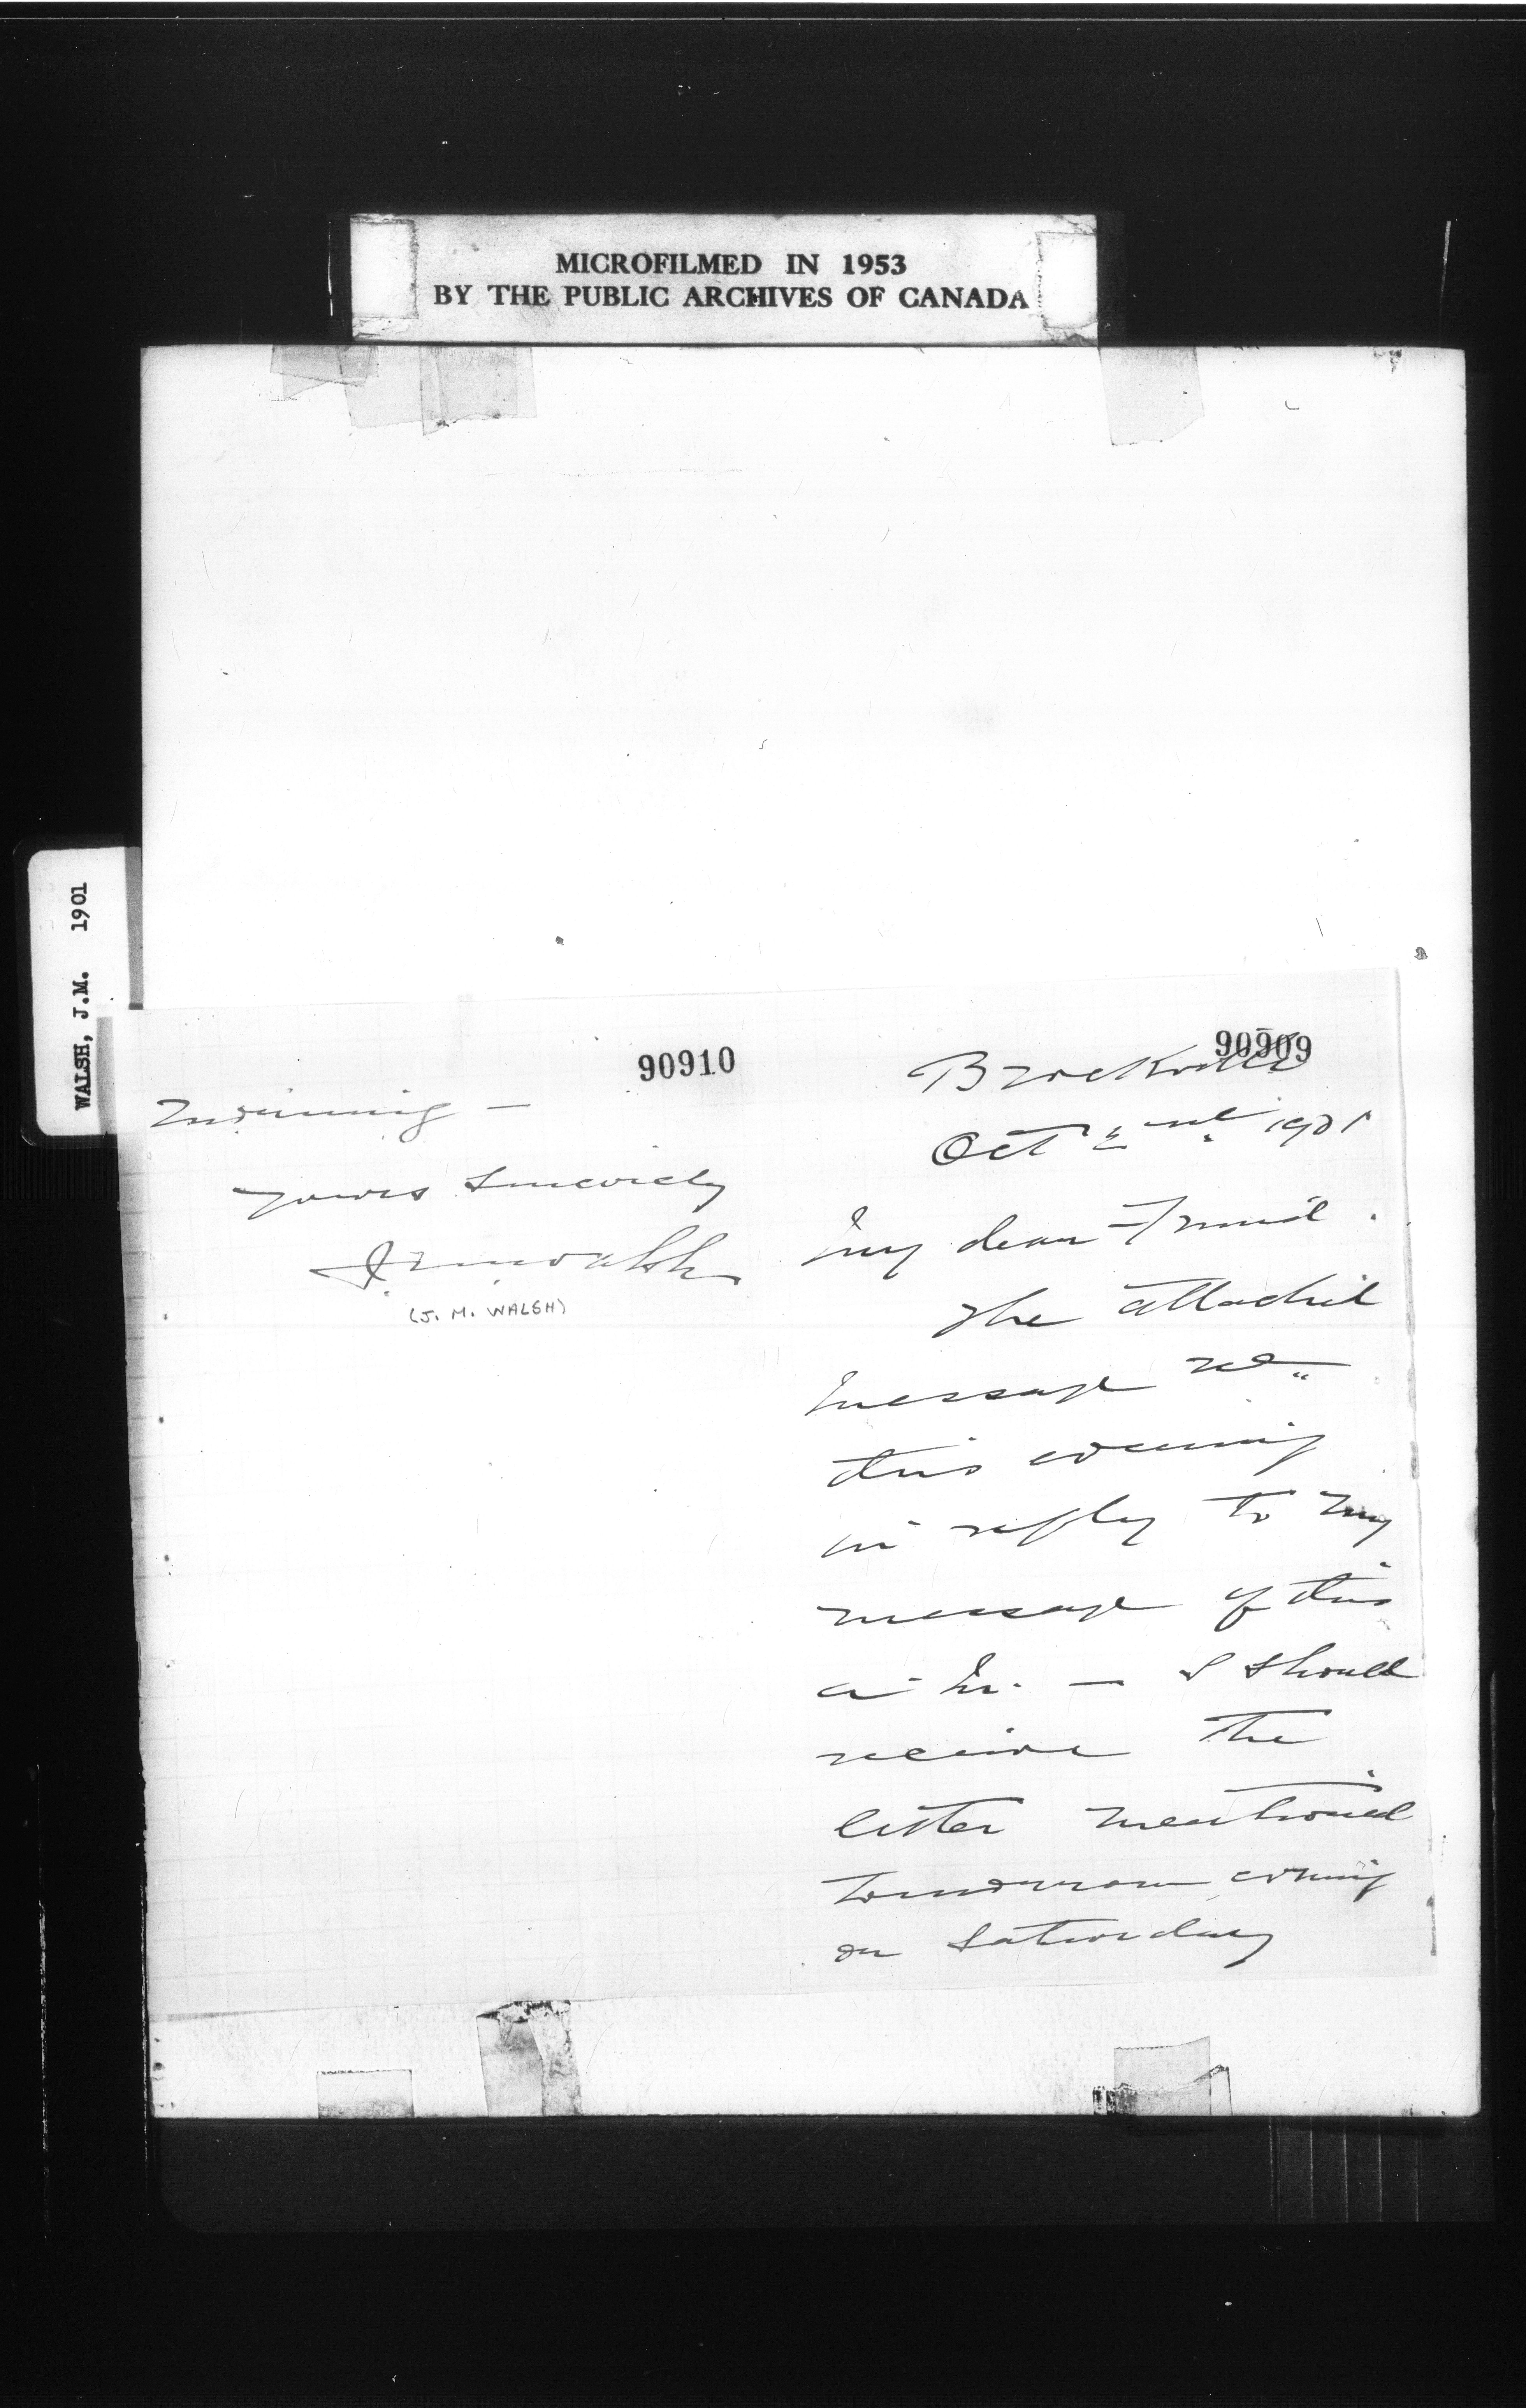 MICROFILMED IN 1953
BY THE PUBLIC ARCHIVES OF CANADA
WALSH, J.M. 1901
90909
Brockville
Oct 2nd 1901
My dear Friend.
The attached
message recd
this evening
in reply to my
message of this
a.m. — I should
receive the
letter mentioned
tomorrow evening
or Saturday
90910
morning —
Yours Sincerely
J M Walsh
(J. M. WALSH)